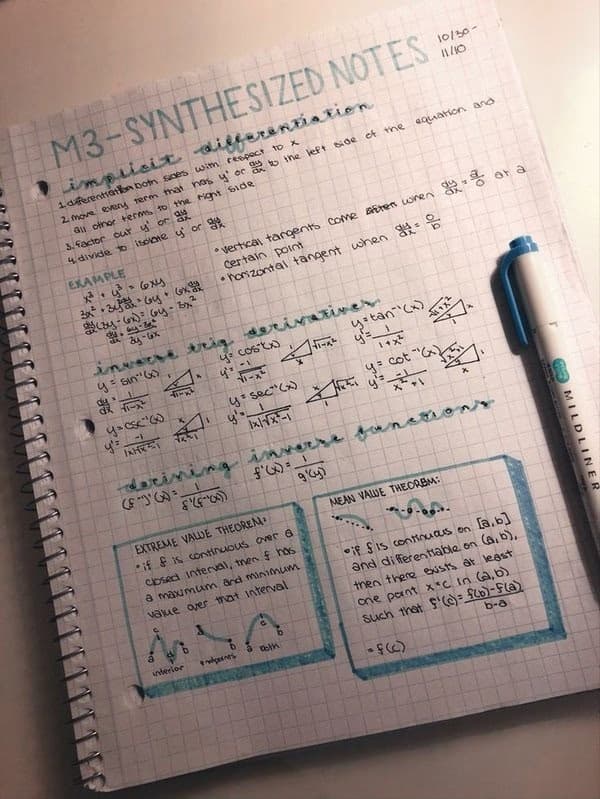 M3-SYNTHESIZED NOTES
10/30-
11/10
implicit differentiation
1. differentiate both sides with respect to x
2. move every term that has y' or dy/dx to the left side of the equation and
all other terms to the right side
3. factor out y' or dy/dx
4. divide to isolate y' or dy/dx
• vertical tangents come when dy/dx = a/0 at a
certain point
• horizontal tangent when dy/dx = 0/b
EXAMPLE
x³ + y³ = 6xy
inverse trig derivatives
y = sin⁻¹(x)
dy/dx = 1/√1-x²
y = cos⁻¹(x)
y' = -1/√1-x²
y = tan⁻¹(x)
y' = 1/1+x²
y = csc⁻¹(x)
y' = -1/|x|√x²-1
y = sec⁻¹(x)
y' = 1/|x|√x²-1
y = cot⁻¹(x)
y' = -1/x²+1
deriving inverse functions
(f⁻¹)'(x) = 1/f'(f⁻¹(x))
f'(x) = 1/g'(y)
EXTREME VALUE THEOREM:
• if f is continuous over a
closed interval, then f has
a maximum and minimum
value over that interval
a c d b
a b
a c b
interior endpoints both
MEAN VALUE THEOREM:
• if f is continuous on [a,b]
and differentiable on (a,b),
then there exists at least
one point x=c in (a,b)
such that f'(c) = f(b)-f(a)/b-a
= f(c)
MILDLINER